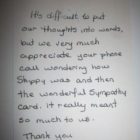 It's difficult to put
our thoughts into words,
but we very much
appreciate your phone
call wondering how
Skippy was and then
the wonderful Sympathy
card. it really meant
so much to us.
Thank you